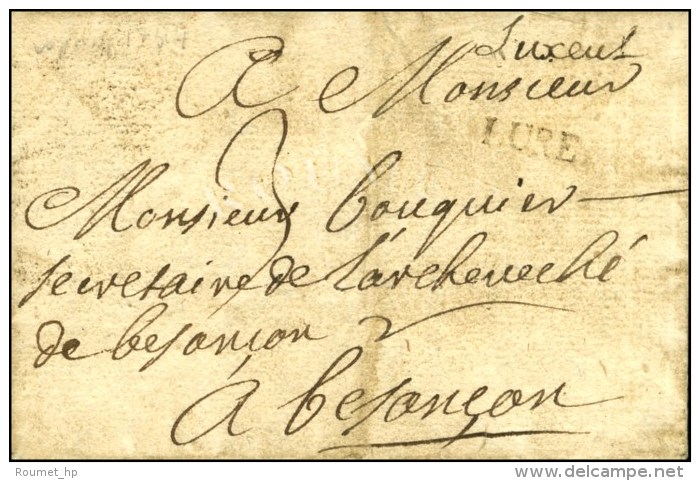 Luxeul
A Monsieur
LURE
3
Monsieur bouquier
secretaire de l'archeveché
de besançon
A besançon
Roumet_hp
www.delcampe.net